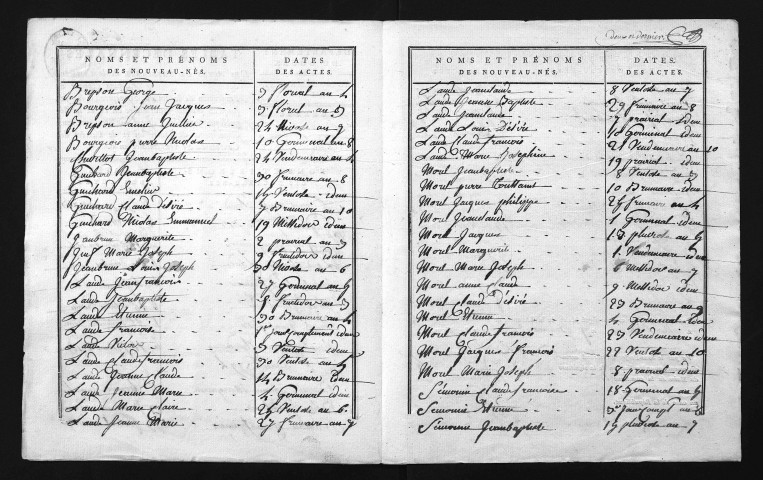 NOMS ET PRÉNOMS DES NOUVEAU-NÉS. DATES DES ACTES.
Brepson George 3 floreal an 4
Bourgeois Jean Jacques 9 floreal an 5
Brepson anne Juilie 24 Nivose an 9
Bourgeois pierre Nicolas 10 Germinal an 8
Jeanbaptiste 24 Vendemiaire an
Guichard Jeanbaptiste 30 frimaire an 8
Guichard 14 Ventose idem
Guichard Claude désiré Brumaire an 10
Guichard Nicolas Emmanuel 19 Messidor idem
Jeanbrun Marguerite 2 prairial an 5
Marie Joseph 9 fructidor idem
Jeanbrun Louis Joseph 30 Nivose an 6
Laude Jeanfrancois 27 Germinal an
Laude Jeanbaptiste 8 fructidor an 5
Laude Etienne 30 Brumaire an 4
Laude francoise 1er jour complement idem
Laude Victor Ventose idem
Laude Claudefrancois 30 Ventose an
Laude Claude 14 Brumaire idem
Laude Jeanne Marie 4 Germinal idem
Laude Marie Claire 24 Ventose an 6
Laude Jeanne Marie 27 frimaire an 7
deux et dernier
NOMS ET PRÉNOMS DES NOUVEAU-NÉS. DATES DES ACTES.
Laude Jeanclaude 8 Ventose an 7
Laude Baptiste 29 frimaire an 8
Laude Jeanclaude 7 prairial idem
Laude Louis Désiré 10 Germinal idem
Laude Claude francois 21 Vendemiaire an 10
Laude Marie Josephine 19 prairial idem
Morel Jeanbaptiste 8 Ventose an
Morel pierre Toussaint 10 Brumaire idem
Morel Jacques philippe 24 frimaire an 4
Morel Jeanclaude 1 Germinal idem
Morel Jacques 13 pluviose an
Morel Marguerite 1 Vendemiaire idem
Morel Marie Joseph 6 Messidor an 7
Morel anne Claude 9 Messidor idem
Morel Claude Désiré 23 Brumaire an 9
Morel Etienne 4 Germinal idem
Morel Claude francois 23 Vendemiaire idem
Morel Jacques francois 27 Ventose an 10
Morel Marie Joseph 8 prairial idem
Sémonin Claude francoise 18 Germinal an
Semonin Etienne
Sémonin Jeanbaptiste 14 pluviose an 7